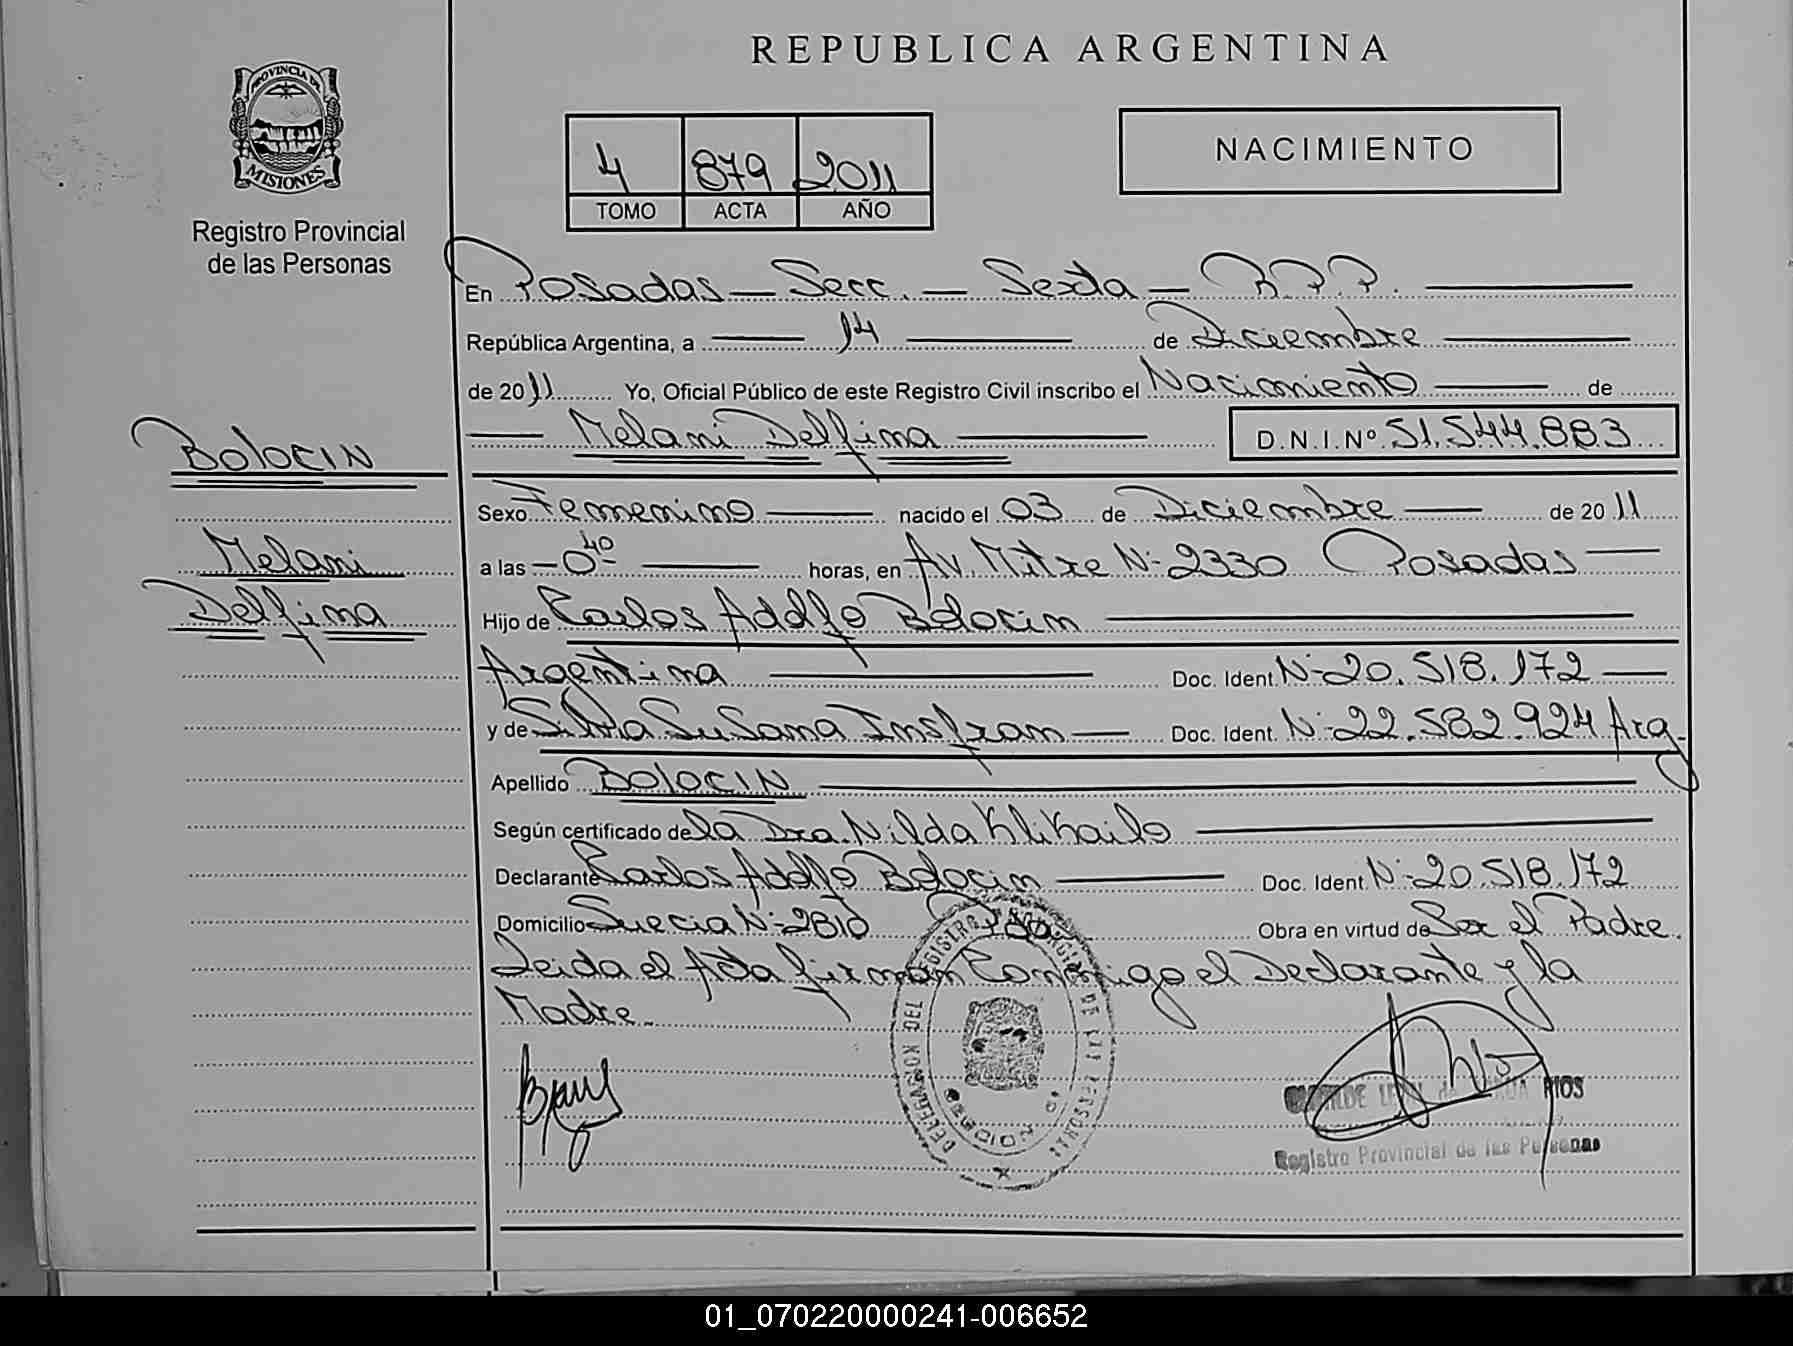 REPUBLICA ARGENTINA
PROVINCIA DE
MISIONES
Registro Provincial
de las Personas
4 879 2011
TOMO ACTA AÑO
NACIMIENTO
En Posadas — Secc. — Sexta — R.P.P. —
República Argentina, a — 14 — de Diciembre —
de 2011 Yo, Oficial Público de este Registro Civil inscribo el Nacimiento — de
— Melani Delfina —
D.N.I.Nº 51.544.883
BOlOCIN
Melani
Delfina
Sexo Femenino — nacido el 03 de Diciembre — de 2011
a las — 0 40 — horas, en Av. Mitre Nº 2330 Posadas —
Hijo de Carlos Adolfo Bolocin —
Argentina — Doc. Ident. Nº 20.518.172 —
y de Silvia Susana Insfran — Doc. Ident. Nº 22.582.924 Arg.
Apellido BOlOCIN —
Según certificado de la Dra. Nilda Klikailo —
Declarante Carlos Adolfo Bolocin — Doc. Ident. Nº 20.518.172
Domicilio Suecia Nº 2810 Obra en virtud de Ser el Padre.
Leida el Acta firman Conmigo el Declarante y la
Madre.
DELEGACION DEL REGISTRO PROVINCIAL DE LAS PERSONAS
RIOS
Registro Provincial de las Personas
01_070220000241-006652